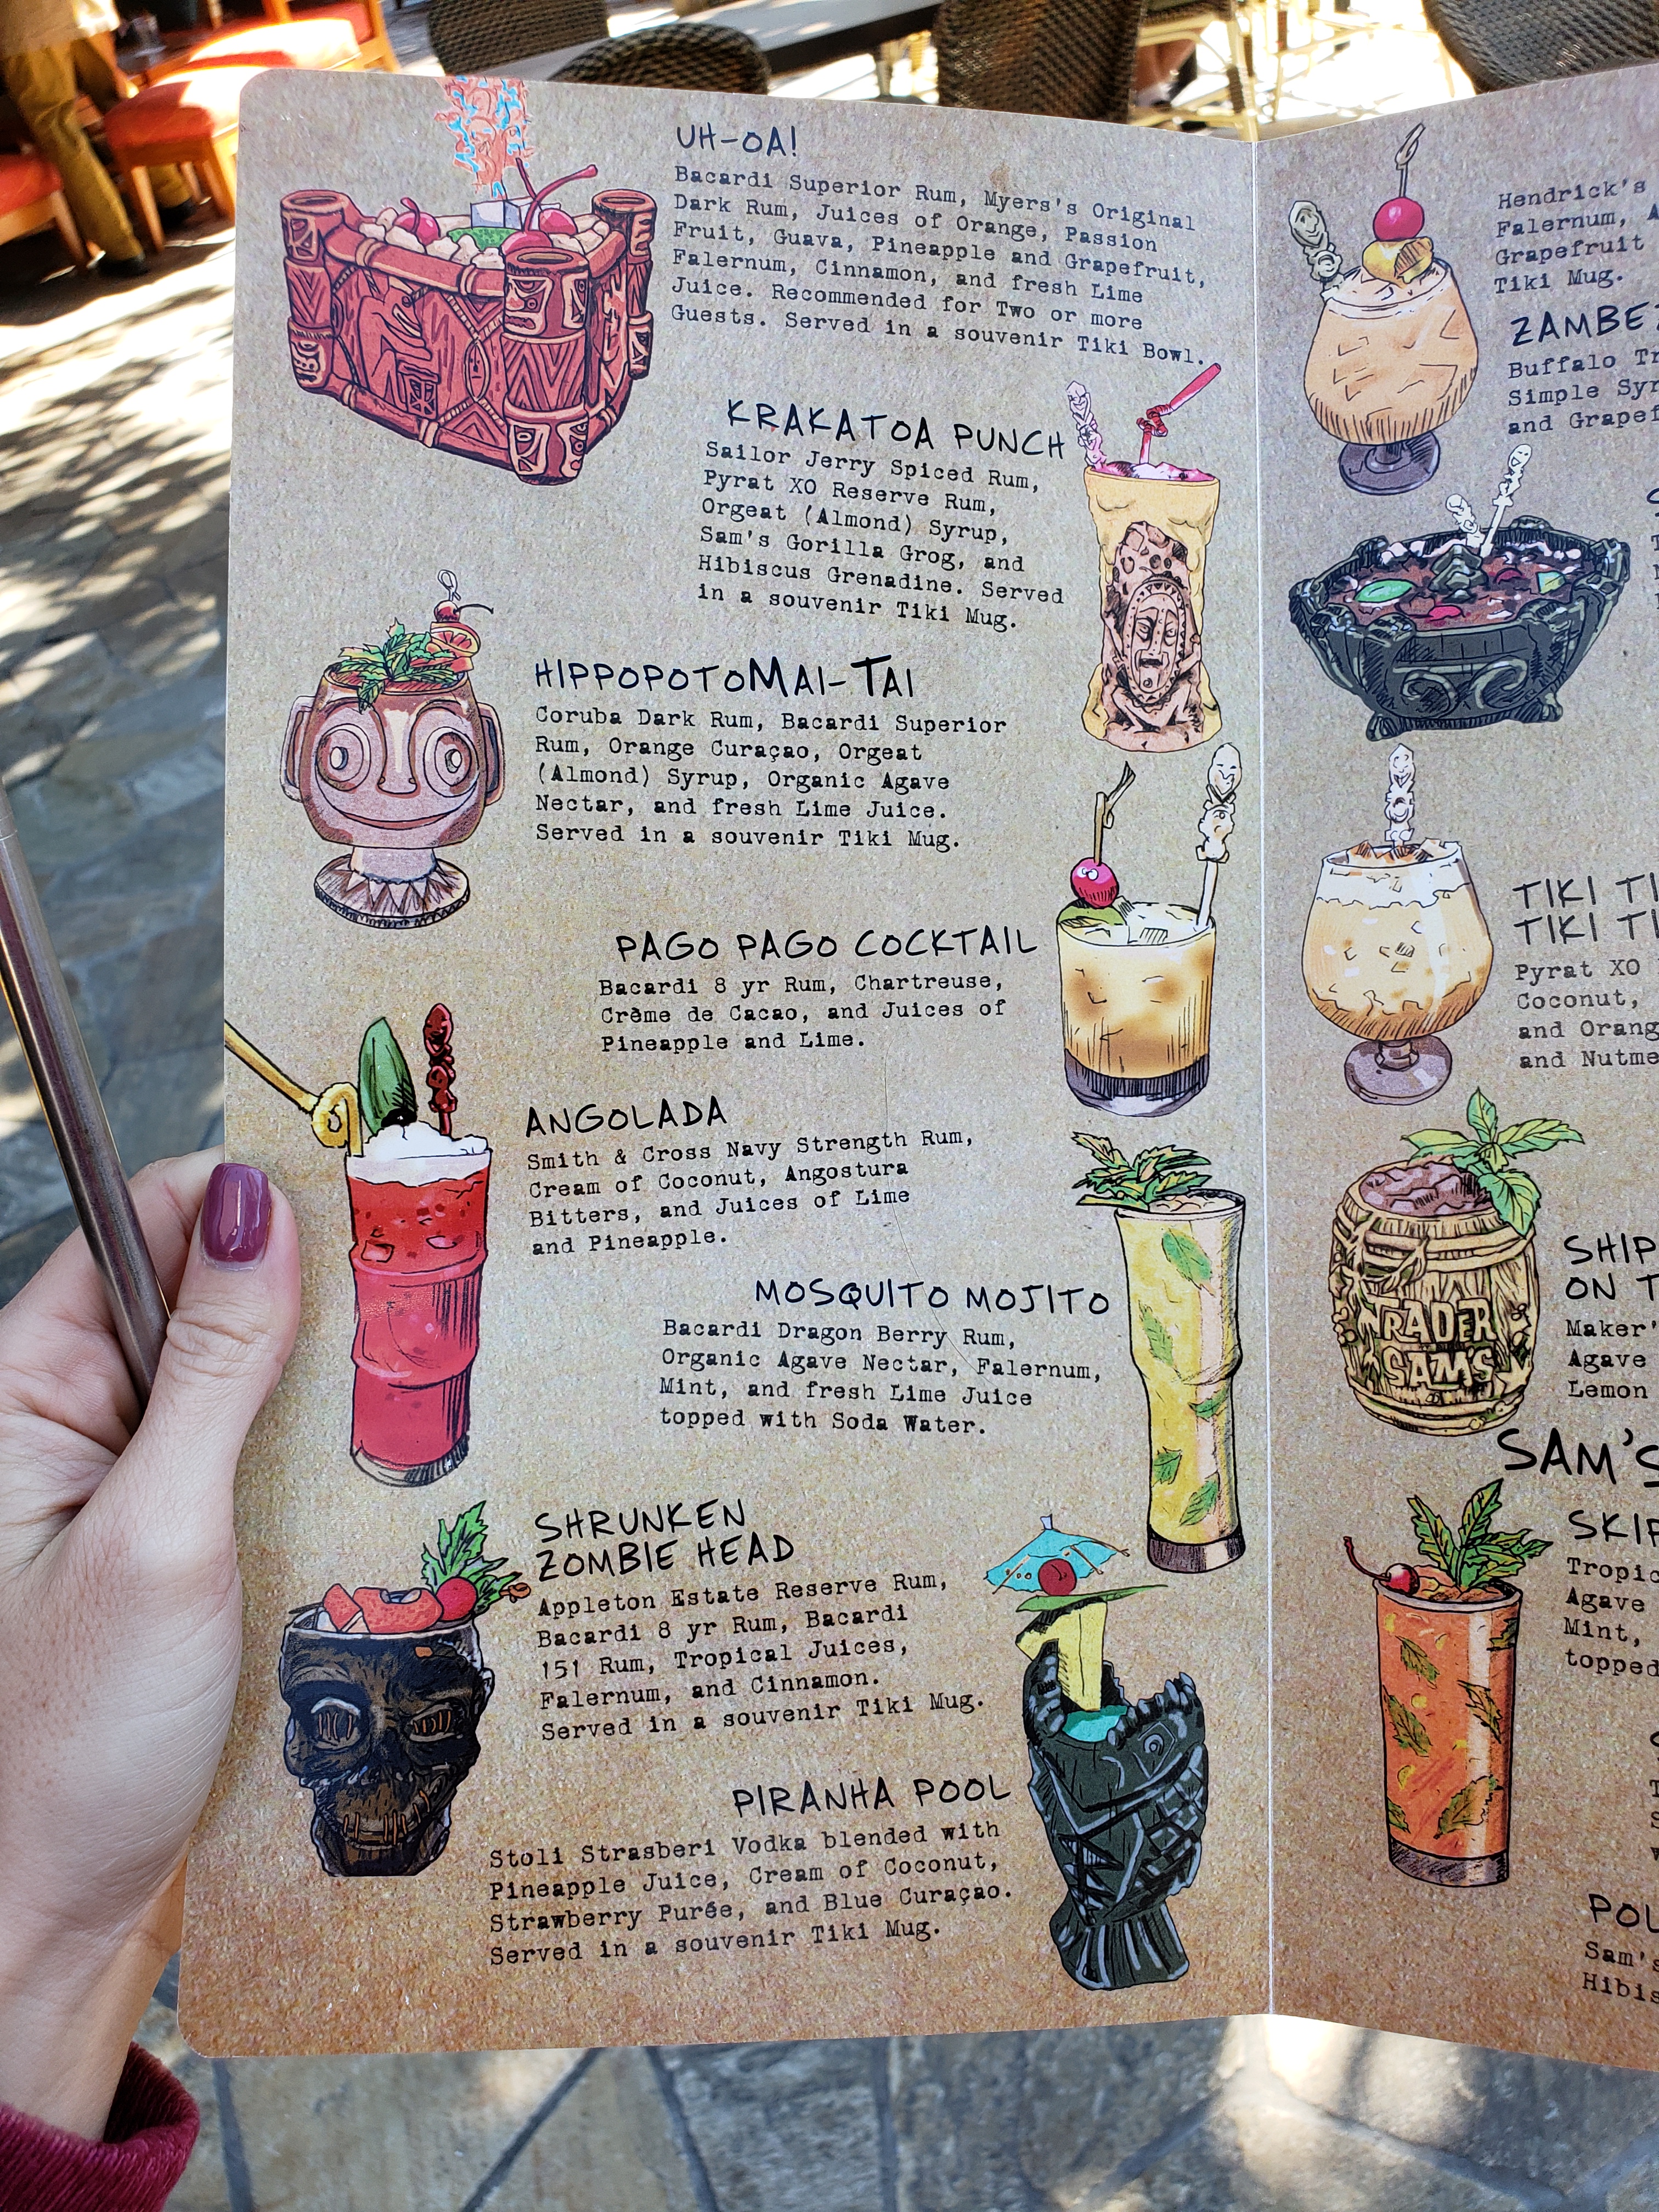 UH-OA!
Bacardi Superior Rum, Myers's Original
Dark Rum, Juices of Orange, Passion
Fruit, Guava, Pineapple and Grapefruit,
Falernum, Cinnamon, and fresh Lime
Juice. Recommended for Two or more
Guests. Served in a souvenir Tiki Bowl.
KRAKATOA PUNCH
Sailor Jerry Spiced Rum,
Pyrat XO Reserve Rum,
Orgeat (Almond) Syrup,
Sam's Gorilla Grog, and
Hibiscus Grenadine. Served
in a souvenir Tiki Mug.
HIPPOPOTOMAI-TAI
Coruba Dark Rum, Bacardi Superior
Rum, Orange Curaçao, Orgeat
(Almond) Syrup, Organic Agave
Nectar, and fresh Lime Juice.
Served in a souvenir Tiki Mug.
PAGO PAGO COCKTAIL
Bacardi 8 yr Rum, Chartreuse,
Crème de Cacao, and Juices of
Pineapple and Lime.
ANGOLADA
Smith & Cross Navy Strength Rum,
Cream of Coconut, Angostura
Bitters, and Juices of Lime
and Pineapple.
MOSQUITO MOJITO
Bacardi Dragon Berry Rum,
Organic Agave Nectar, Falernum,
Mint, and fresh Lime Juice
topped with Soda Water.
SHRUNKEN
ZOMBIE HEAD
Appleton Estate Reserve Rum,
Bacardi 8 yr Rum, Bacardi
151 Rum, Tropical Juices,
Falernum, and Cinnamon.
Served in a souvenir Tiki Mug.
PIRANHA POOL
Stoli Strasberi Vodka blended with
Pineapple Juice, Cream of Coconut,
Strawberry Purée, and Blue Curaçao.
Served in a souvenir Tiki Mug.
Hendrick's
Falernum,
Grapefruit
Tiki Mug.
ZAMBE
Buffalo Tr
Simple Syr
and Grapef
TIKI TI
TIKI TI
Pyrat XO
Coconut,
and Orang
and Nutme
TRADER
SAM'S
SHIP
ON T
Maker'
Agave
Lemon
SAM'S
SKIP
Tropic
Agave
Mint,
topped
POL
Sam's
Hibis